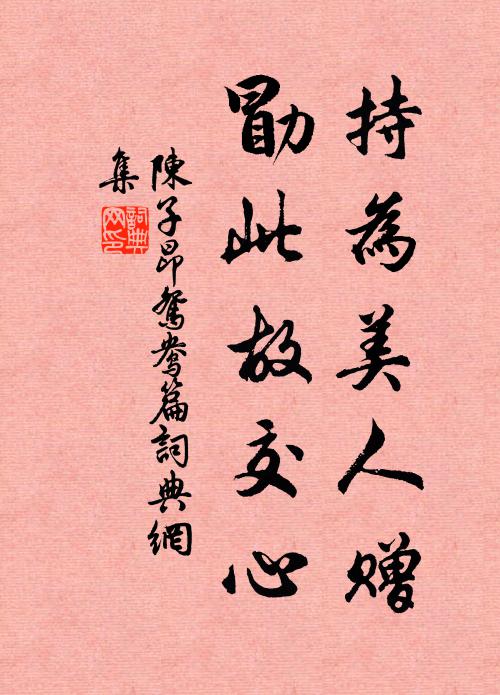 持為美人贈
勖此故交心
陳子昂鴛鴦篇詞典網
集
詞典
网印